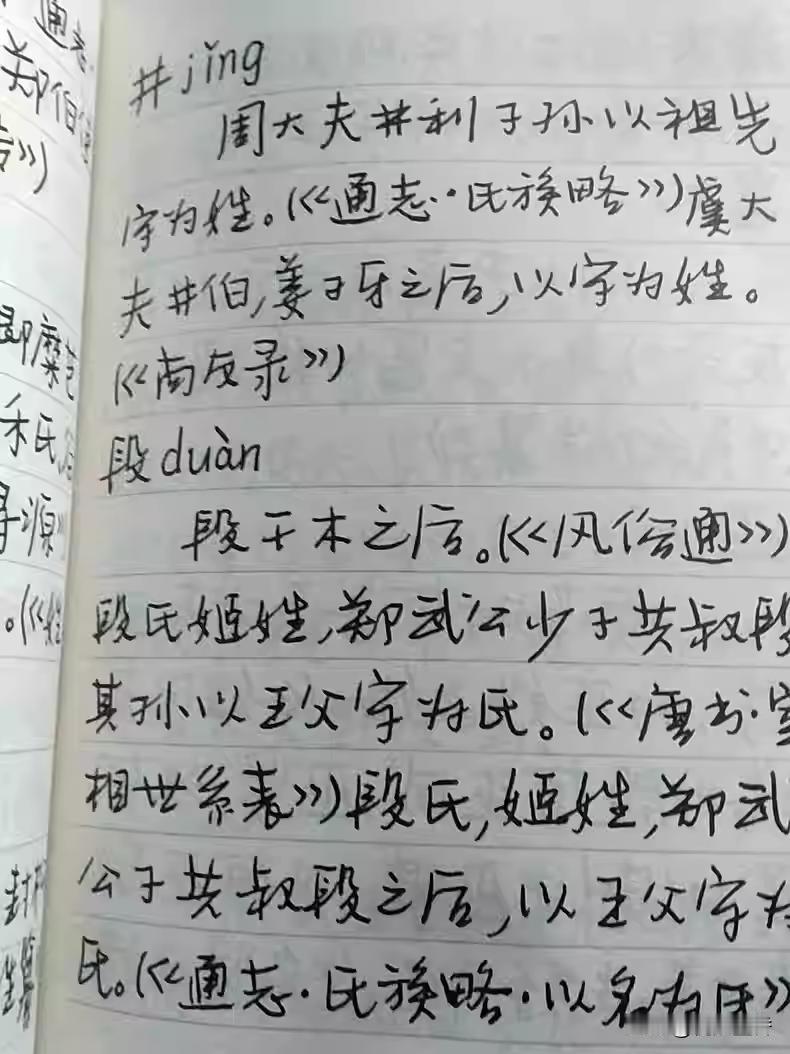 井jǐng
周大夫井利子孙以祖先
字为姓。(《通志·氏族略》)虞大
夫井伯,姜子牙之后,以字为姓。
(《尚友录》)
段duàn
段干木之后。(《风俗通》)
段氏姬姓,郑武公少子共叔段
其孙以王父字为氏。(《唐书·宰
相世系表》)段氏,姬姓,郑武
公子共叔段之后,以王父字为
氏。(《通志·氏族略·以名为氏》
通志·
郑伯
》)
即糜
禾氏,
寻源
。(《姓